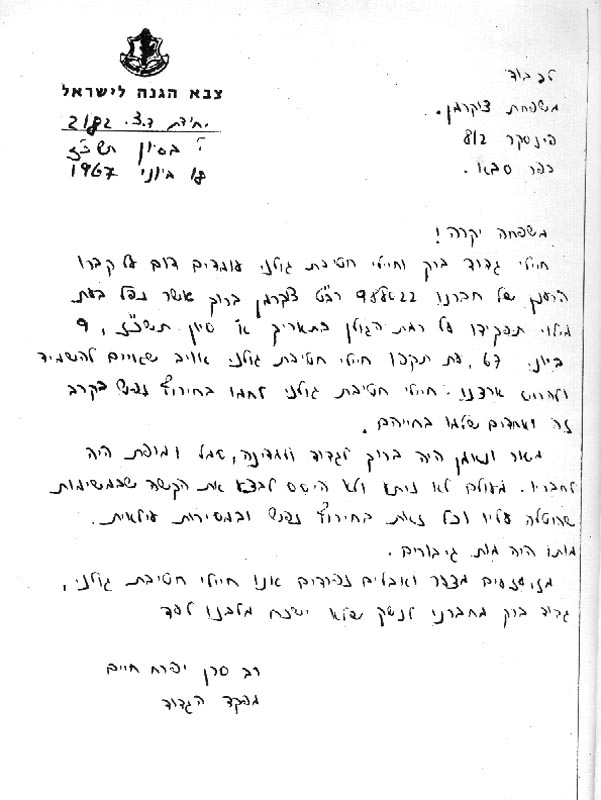 צבא הגנה לישראל
יחידת ד.צ. 2182
י' בסיון תשכ"ז
18 ביוני 1967
לכבוד
משפחת צוקרמן.
פינסקר 8/2
כפר סבא.
משפחה יקרה!
חיילי גדוד ברק וחיילי חטיבת גולני עומדים דום על קברו
הרענן של חברנו 988622 רב"ט צוקרמן ברוך אשר נפל בעת
מילוי תפקידו על רמת הגולן בתאריך א' סיון תשכ"ז, 9
ביוני 67, עת תקפו חיילי חטיבת גולני אויב שאיים להשמיד
ולהרוס ארצנו. חיילי חטיבת גולני לחמו בחירוף נפש בקרב
זה ואחדים שלמו בחייהם.
מסור ונאמן היה ברוך לגדוד ולמדינה, סמל ומופת היה
לחבריו. מעולם לא ניתק ולא היסס לבצע את הקשה שבמשימות
שהוטלה עליו וכל זאת בחירוף נפש ובמסירות עילאית.
מותו היה מות גיבורים.
מזועזעים מצער ואבלים נפרדים אנו חיילי חטיבת גולני,
גדוד ברק מחברנו לנשק שלא ישכח מלבנו לעד
רב סרן יפרח חיים
מפקד הגדוד